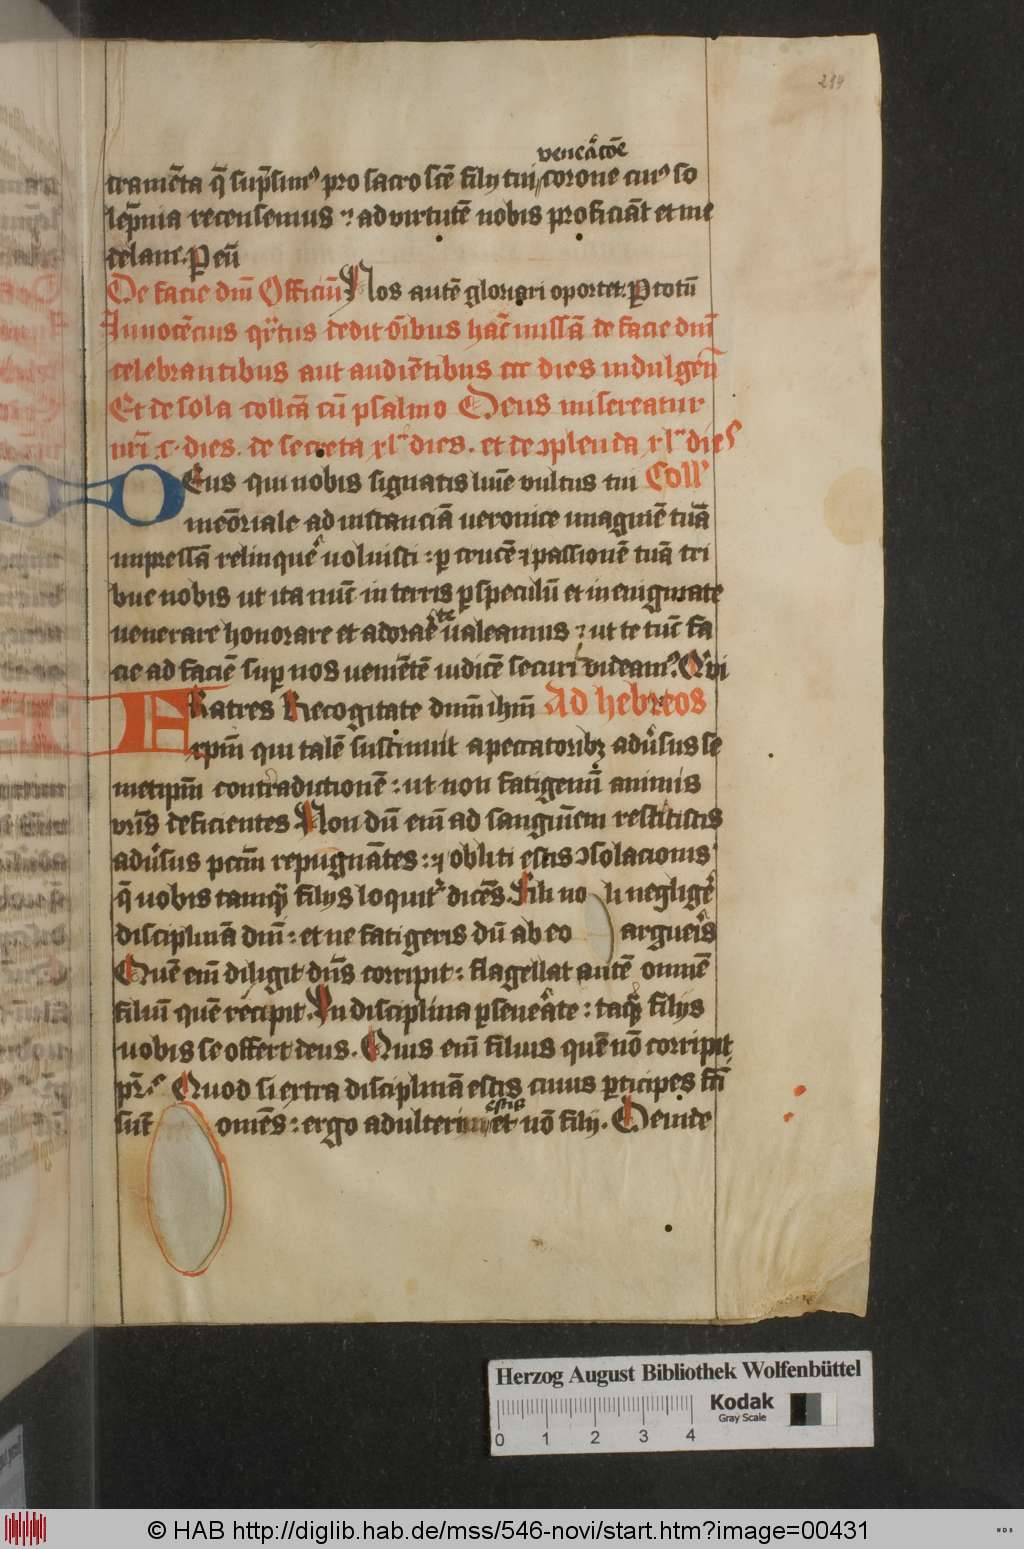 219
veneͣcoe̅
crame̅ta q̅ sup̅simꝰ pro sacro sce̅ filij tui corone cuiꝰ so
lep̅nia recensemus : ad virtute̅ nobis proficia̅t et me
delam. Per eu̅
De facie dni̅ Officiu̅ Nos aute̅ gloriari oportet. P̅ totu̅
Innoce̅cius qr̅tus dedit o̅ibus hac̅ missa̅ de facie dni̅
celebrantibus aut audie̅tibus ccc dies indulgen̅
Et de sola collca̅ cu̅ psalmo Deus misereatur
nri̅ .c. dies. de secreta xl dies. et de ꝯplenda xl dies
Deus qui nobis signatis lumi̅e vultus tui Coll
meo̅riale ad instancia̅ veronice imagine̅ tua̅
impressa̅ relinque̅ voluisti : ꝑ cruce̅ ⁊ passione̅ tua̅ tri
bue nobis ut ita nu̅c in terris ꝑ speculu̅ et in enigmate
te
venerare honorare et adorare̅ valeamus : ut te tu̅c fa
cie ad facie̅ suꝑ nos venie̅te̅ iudice̅ securi videamꝰ. Qui
Fratres Recogitate dnm̅ ihm̅ Ad hebreos
xpm̅ qui tale̅ sustinuit a peccatoribꝫ adu̅sus se
metipm̅ contradictione̅ : ut non fatigemi̅ animis
vri̅s deficientes Non du̅ eni̅ ad sangui̅em restitistis
adu̅sus pccm̅ repugna̅tes : ⁊ obliti estis ꝯsolacionis
q̅ vobis tamqꝫ filijs loquit̅ dice̅s. Fili no li neglige̅
disciplina̅ dni̅ : et ne fatigeris du̅ ab eo argueri̅s
Que̅ eni̅ diligit dn̅s corripit : flagellat aute̅ omne̅
filiu̅ que̅ recipit. In disciplina ꝑseueͣte : ta̅qꝫ filijs
vobis se offert deus. Quis eni̅ filius que̅ no̅ corripit
pr̅. Quod si extra disciplina̅ estis cuius ꝑticipes fc̅i
estis
su̅t om̅es : ergo adulterini et no̅ filij. Deinde
Herzog August Bibliothek Wolfenbüttel
Kodak
Gray Scale
0 1 2 3 4
© HAB http://diglib.hab.de/mss/546-novi/start.htm?image=00431